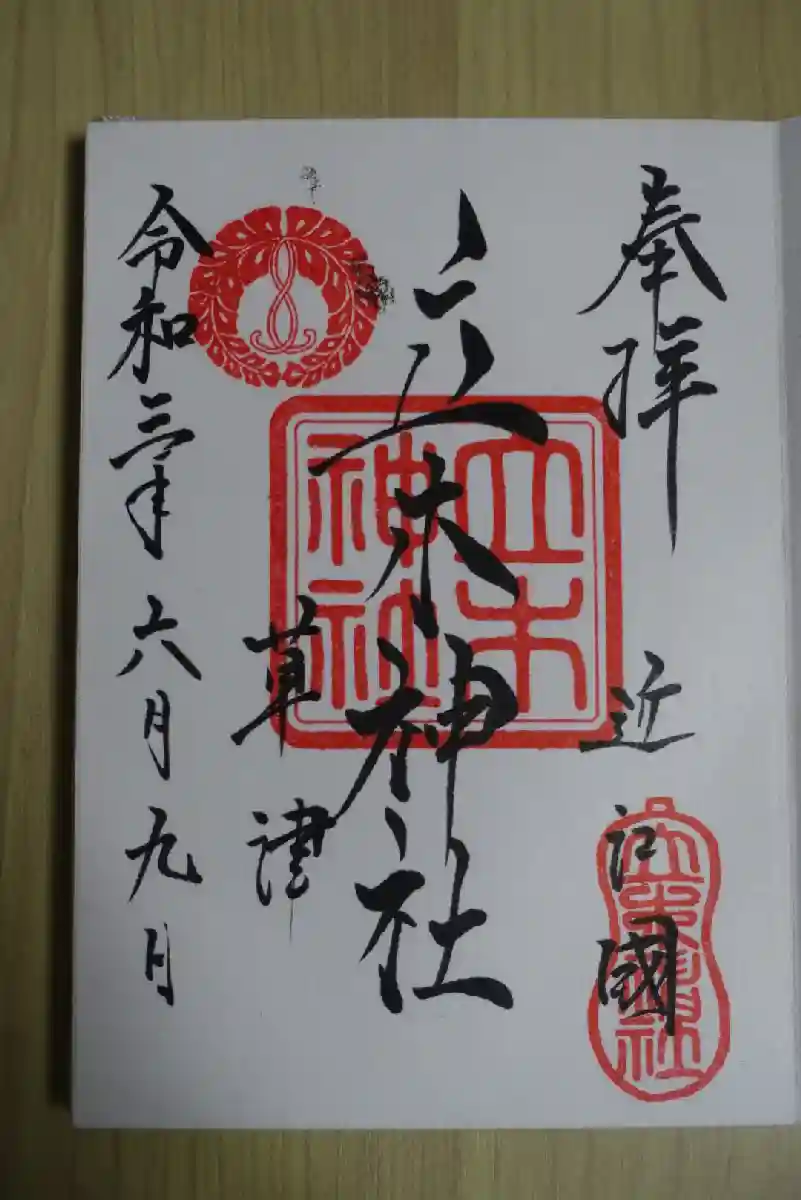 奉拝
近江國
立木神社
立木神社
立木
神社
草津
令和三年六月九日